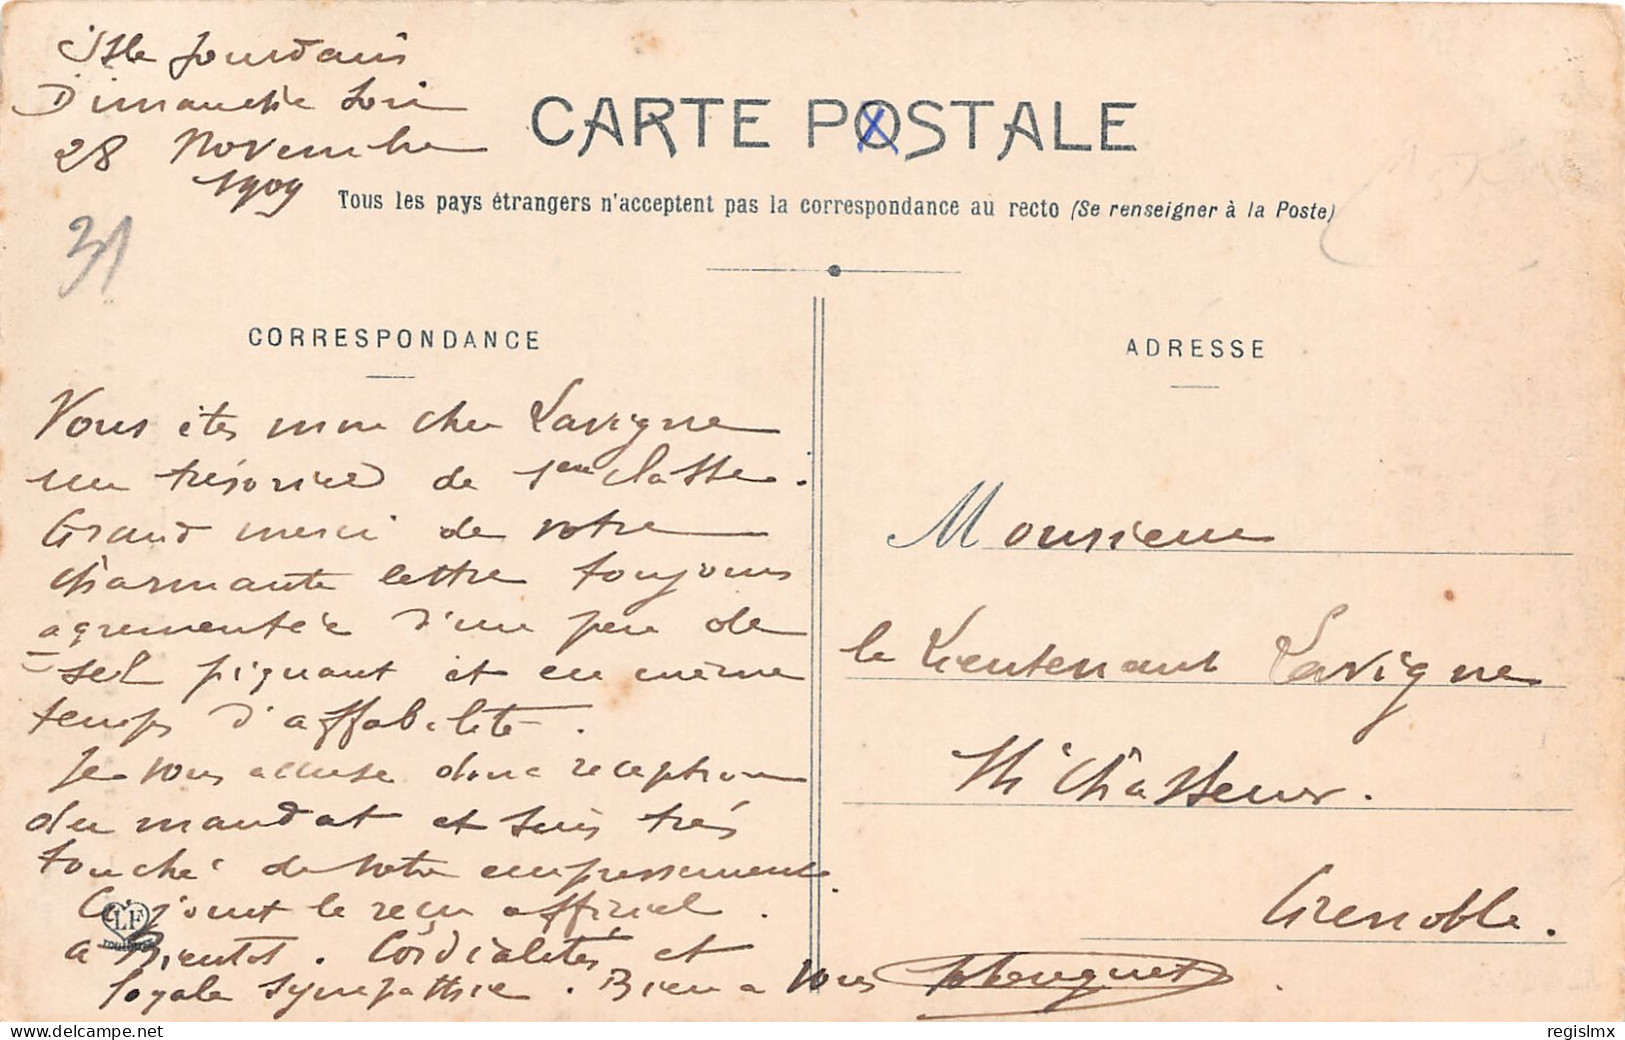 Isle Jourdain
Dimanche soir
28 Novembre
1909
31
CARTE POSTALE
Tous les pays étrangers n'acceptent pas la correspondance au recto (Se renseigner à la Poste)
CORRESPONDANCE
ADRESSE
Vous êtes mon cher Lavigne
un trésorier de 1ere classe.
Grand merci de votre
charmante lettre toujours
agrementée d'un peu de
sel piquant et en même
temps d'affabilité.
Je vous accuse donc reception
du mandat et suis très
touché de votre empressement.
Ci joint le reçu officiel.
a Bientot. Cordialités et
loyale sympathie. Bien a vous
LF
Monsieur
le Lieutenant Lavigne
Chasseur.
Grenoble.
regislmx
delcampe.net